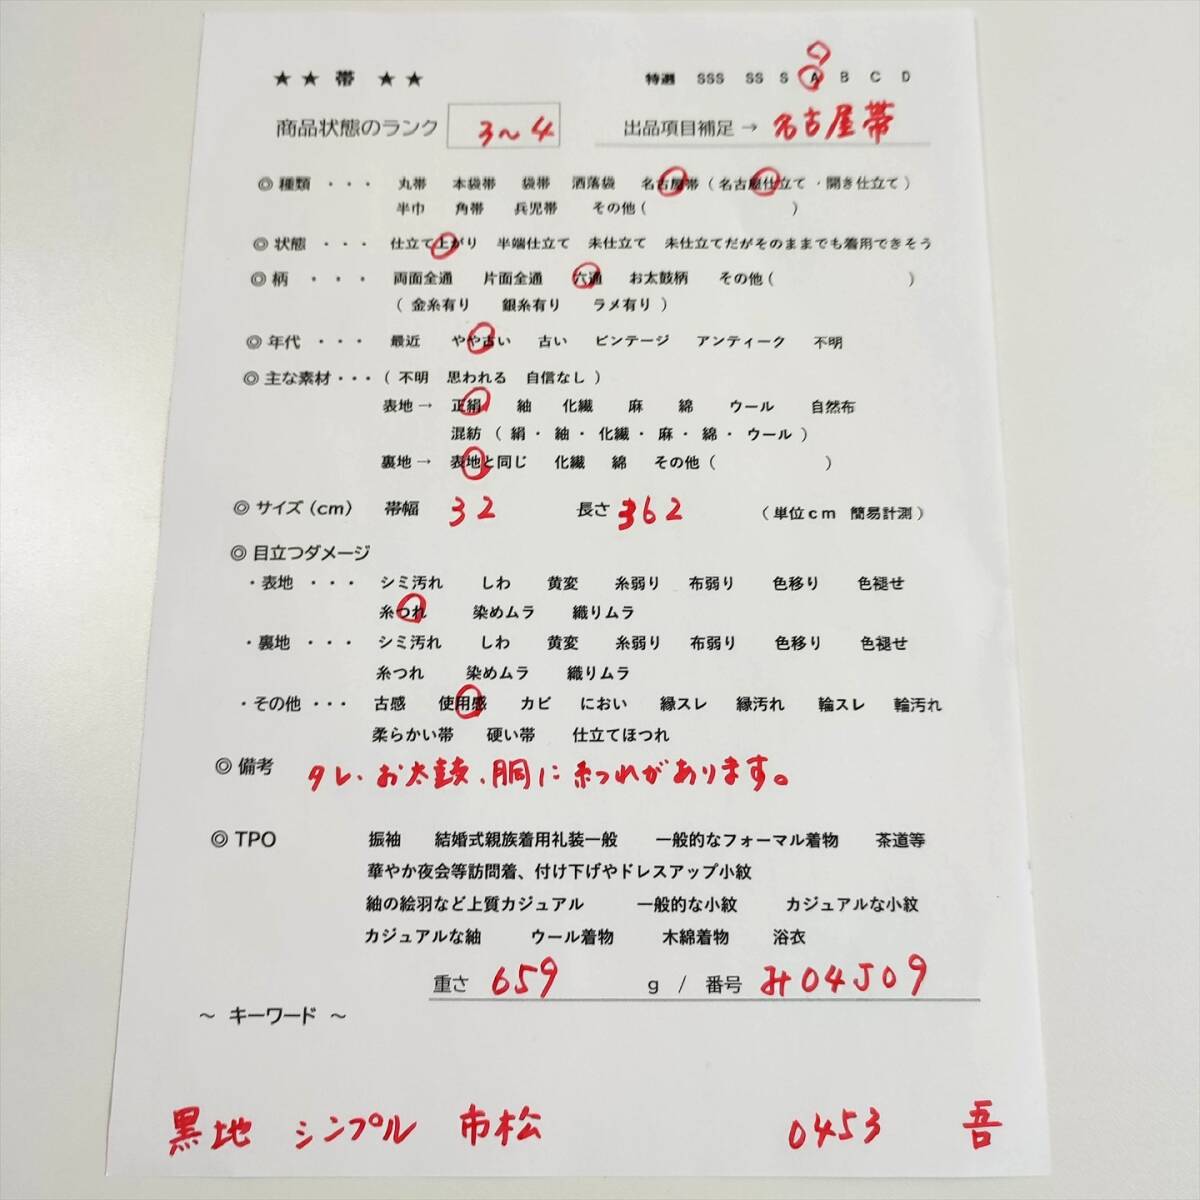 ★ ★ 帯 ★ ★ 特選 SSS SS S A B C D
商品状態のランク 3~4 出品項目補足 → 名古屋帯
◎ 種類 ・・・ 丸帯 本袋帯 袋帯 洒落袋 名古屋帯 ( 名古屋仕立て ・開き仕立て )
半巾 角帯 兵児帯 その他 ( )
◎ 状態 ・・・ 仕立て上がり 半端仕立て 未仕立て 未仕立てだがそのままでも着用できそう
◎ 柄 ・・・ 両面全通 片面全通 六通 お太鼓柄 その他 ( )
( 金糸有り 銀糸有り ラメ有り )
◎ 年代 ・・・ 最近 やや古い 古い ビンテージ アンティーク 不明
◎ 主な素材・・・ ( 不明 思われる 自信なし )
表地 → 正絹 紬 化繊 麻 綿 ウール 自然布
混紡 ( 絹・ 紬・ 化繊・ 麻・ 綿・ ウール )
裏地 → 表地と同じ 化繊 綿 その他 ( )
◎ サイズ (cm) 帯幅 32 長さ 362 ( 単位cm 簡易計測 )
◎ 目立つダメージ
・表地 ・・・ シミ汚れ しわ 黄変 糸弱り 布弱り 色移り 色褪せ
糸つれ 染めムラ 織りムラ
・裏地 ・・・ シミ汚れ しわ 黄変 糸弱り 布弱り 色移り 色褪せ
糸つれ 染めムラ 織りムラ
・その他 ・・・ 古感 使用感 カビ におい 縁スレ 縁汚れ 輪スレ 輪汚れ
柔らかい帯 硬い帯 仕立てほつれ
◎ 備考 タレ、お太鼓、胴に糸つれがあります。
◎ TPO 振袖 結婚式親族着用礼装一般 一般的なフォーマル着物 茶道等
華やか夜会等訪問着、付け下げやドレスアップ小紋
紬の絵羽など上質カジュアル 一般的な小紋 カジュアルな小紋
カジュアルな紬 ウール着物 木綿着物 浴衣
重さ 659 g / 番号 み04J09
~ キーワード ~
黒地 シンプル 市松 0453 吾